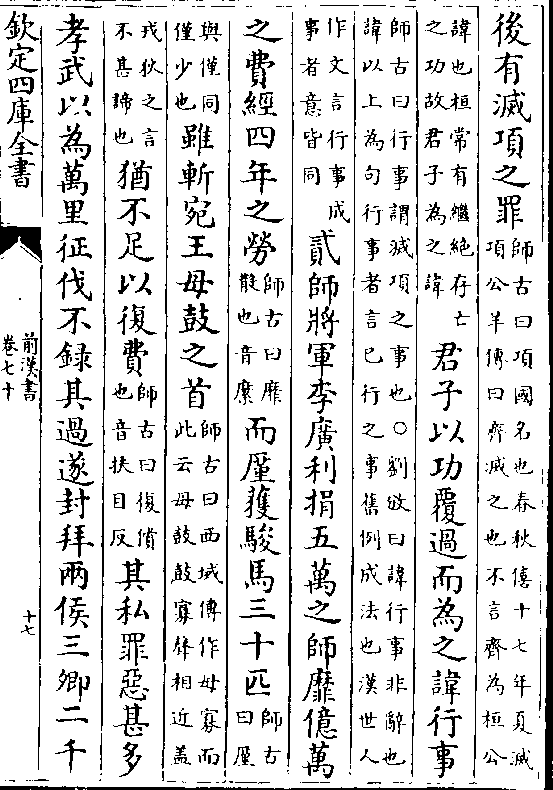 後有滅項之罪師古曰項國名也春秋僖十七年夏滅項公羊傳曰齊滅之也不言齊為桓公
諱也桓常有繼絕存亡之功故君子為之諱君子以功覆過而為之諱行事
師古曰行事謂滅項之事也○劉攽曰諱行事非辭也諱以上為句行事者言已行之事舊例成法也漢世人
作文言行事成事者意皆同貳師將軍李廣利捐五萬之師靡億萬
之費經四年之勞師古曰靡散也音縻而厪獲駿馬三十匹師古曰厪
與僅同僅少也雖斬宛王母鼓之首師古曰西域傳作毋寡而此云毋鼓鼓寡聲相近蓋
戎狄之言不甚諦也猶不足以復費師古曰復償也音扶目反其私罪惡甚多
孝武以為萬里征伐不錄其過遂封拜兩侯三卿二千
欽定四庫全書
前漢書
卷七十
十七